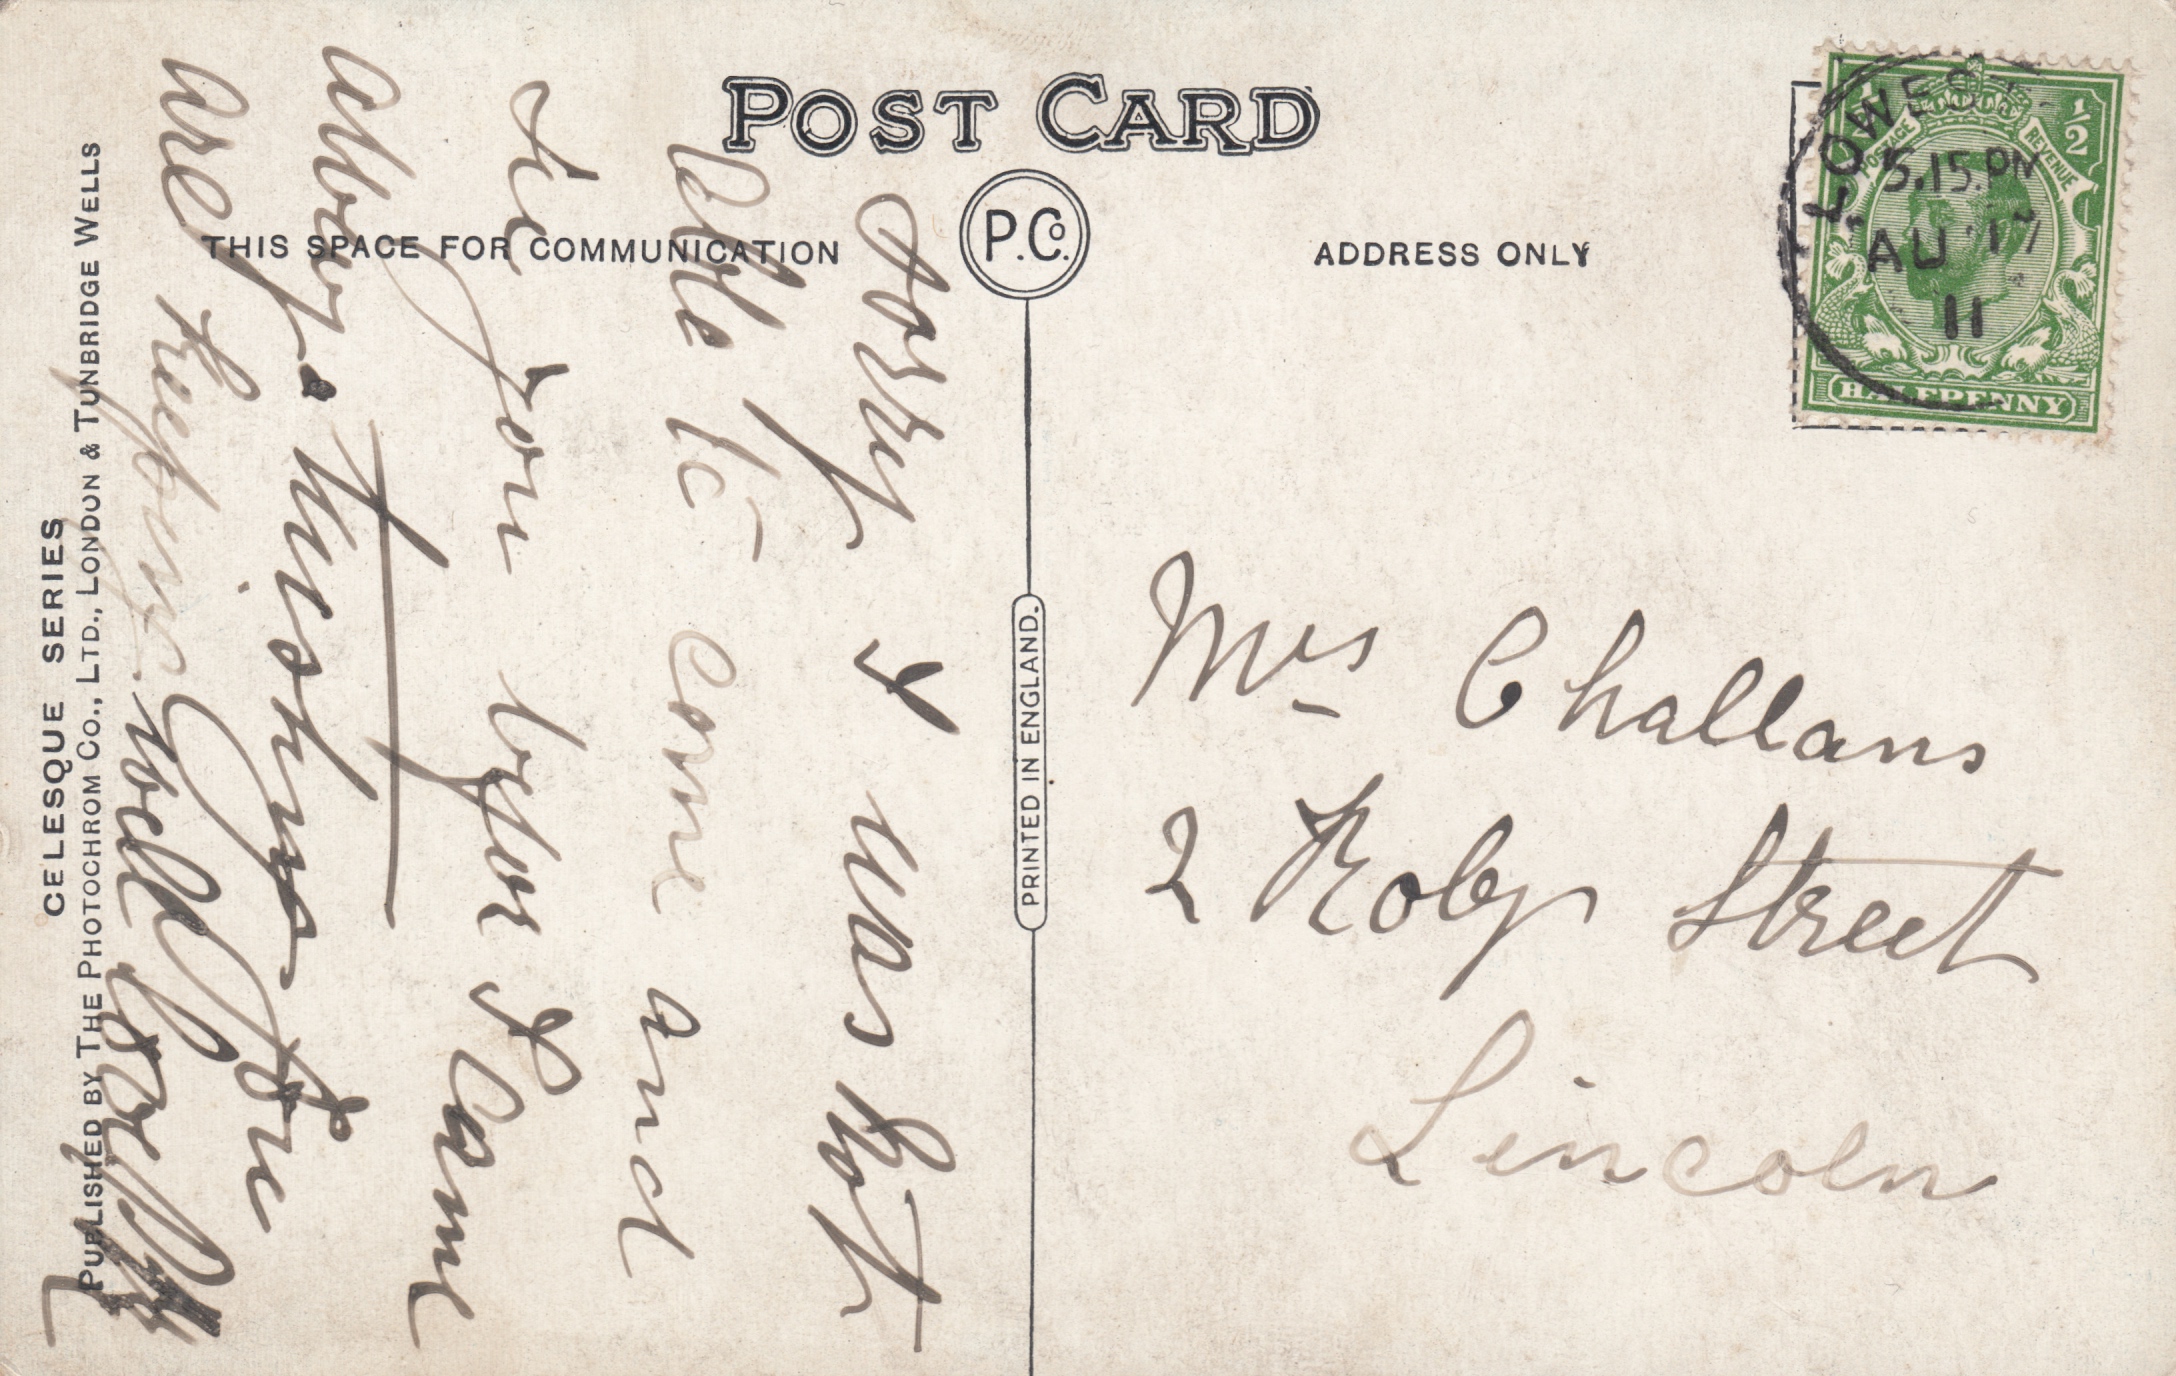 POST CARD
THIS SPACE FOR COMMUNICATION
P. Co.
ADDRESS ONLY
PRINTED IN ENGLAND.
CELESQUE SERIES
PUBLISHED BY THE PHOTOCHROM CO., LTD., LONDON & TUNBRIDGE WELLS
LOWEST
5.15.PM
AU 17
11
POSTAGE
REVENUE
1/2
HALFPENNY
Sorry I was not
able to come and
see you befor I came
away. Wishing
are keeping well love
Mrs Challans
2 Roby Street
Lincoln